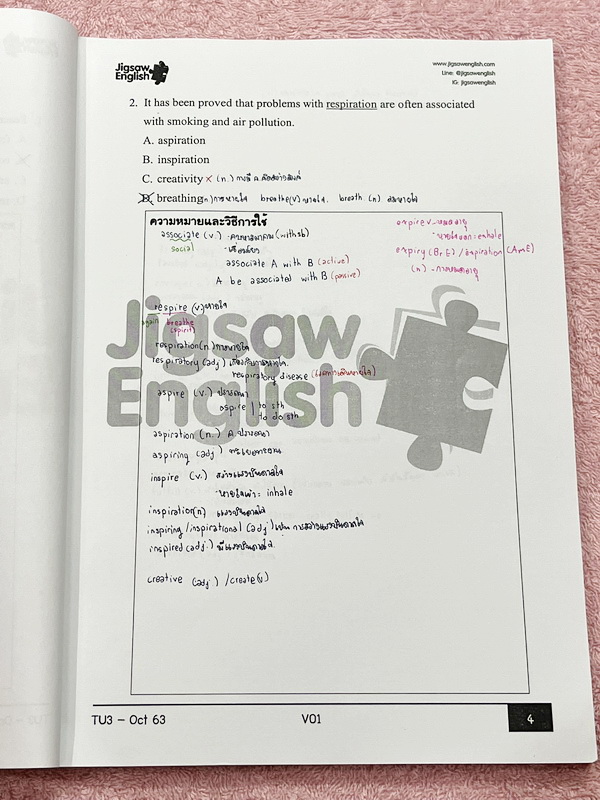 Jigsaw
English
www.jigsawenglish.com
Line: @jigsawenglish
IG: jigsawenglish
2. It has been proved that problems with respiration are often associated
with smoking and air pollution.
A. aspiration
B. inspiration
C. creativity × (n.)
D. breathing (n) การหายใจ breathe (v) หายใจ. breath (n) ลมหายใจ
ความหมายและวิธีการใช้
associate (v.) (with sb)
social
associate A with B (active)
A be associated with B (passive)
expire v. หมดอายุ
หายใจออก : exhale
expiry (Br E) / expiration (AmE)
(n) - การหมดอายุ
respire (v.) หายใจ
again breathe
(spirit)
respiration (n.) การหายใจ
respiratory (adj.) เกี่ยวกับการหายใจ.
respiratory disease (โรคทางเดินหายใจ)
aspire (v.) ปรารถนา
aspire to sth
to do sth
aspiration (n.) ค.ปรารถนา
aspiring (adj.)
inspire (v.) สร้างแรงบันดาลใจ
หายใจเข้า : inhale
inspiration (n) แรงบันดาลใจ
inspiring / inspirational (adj.)
inspired (adj.) มีแรงบันดาลใจ
creative (adj.) / create (v)
Jigsaw
English
TU3 – Oct 63
V01
4